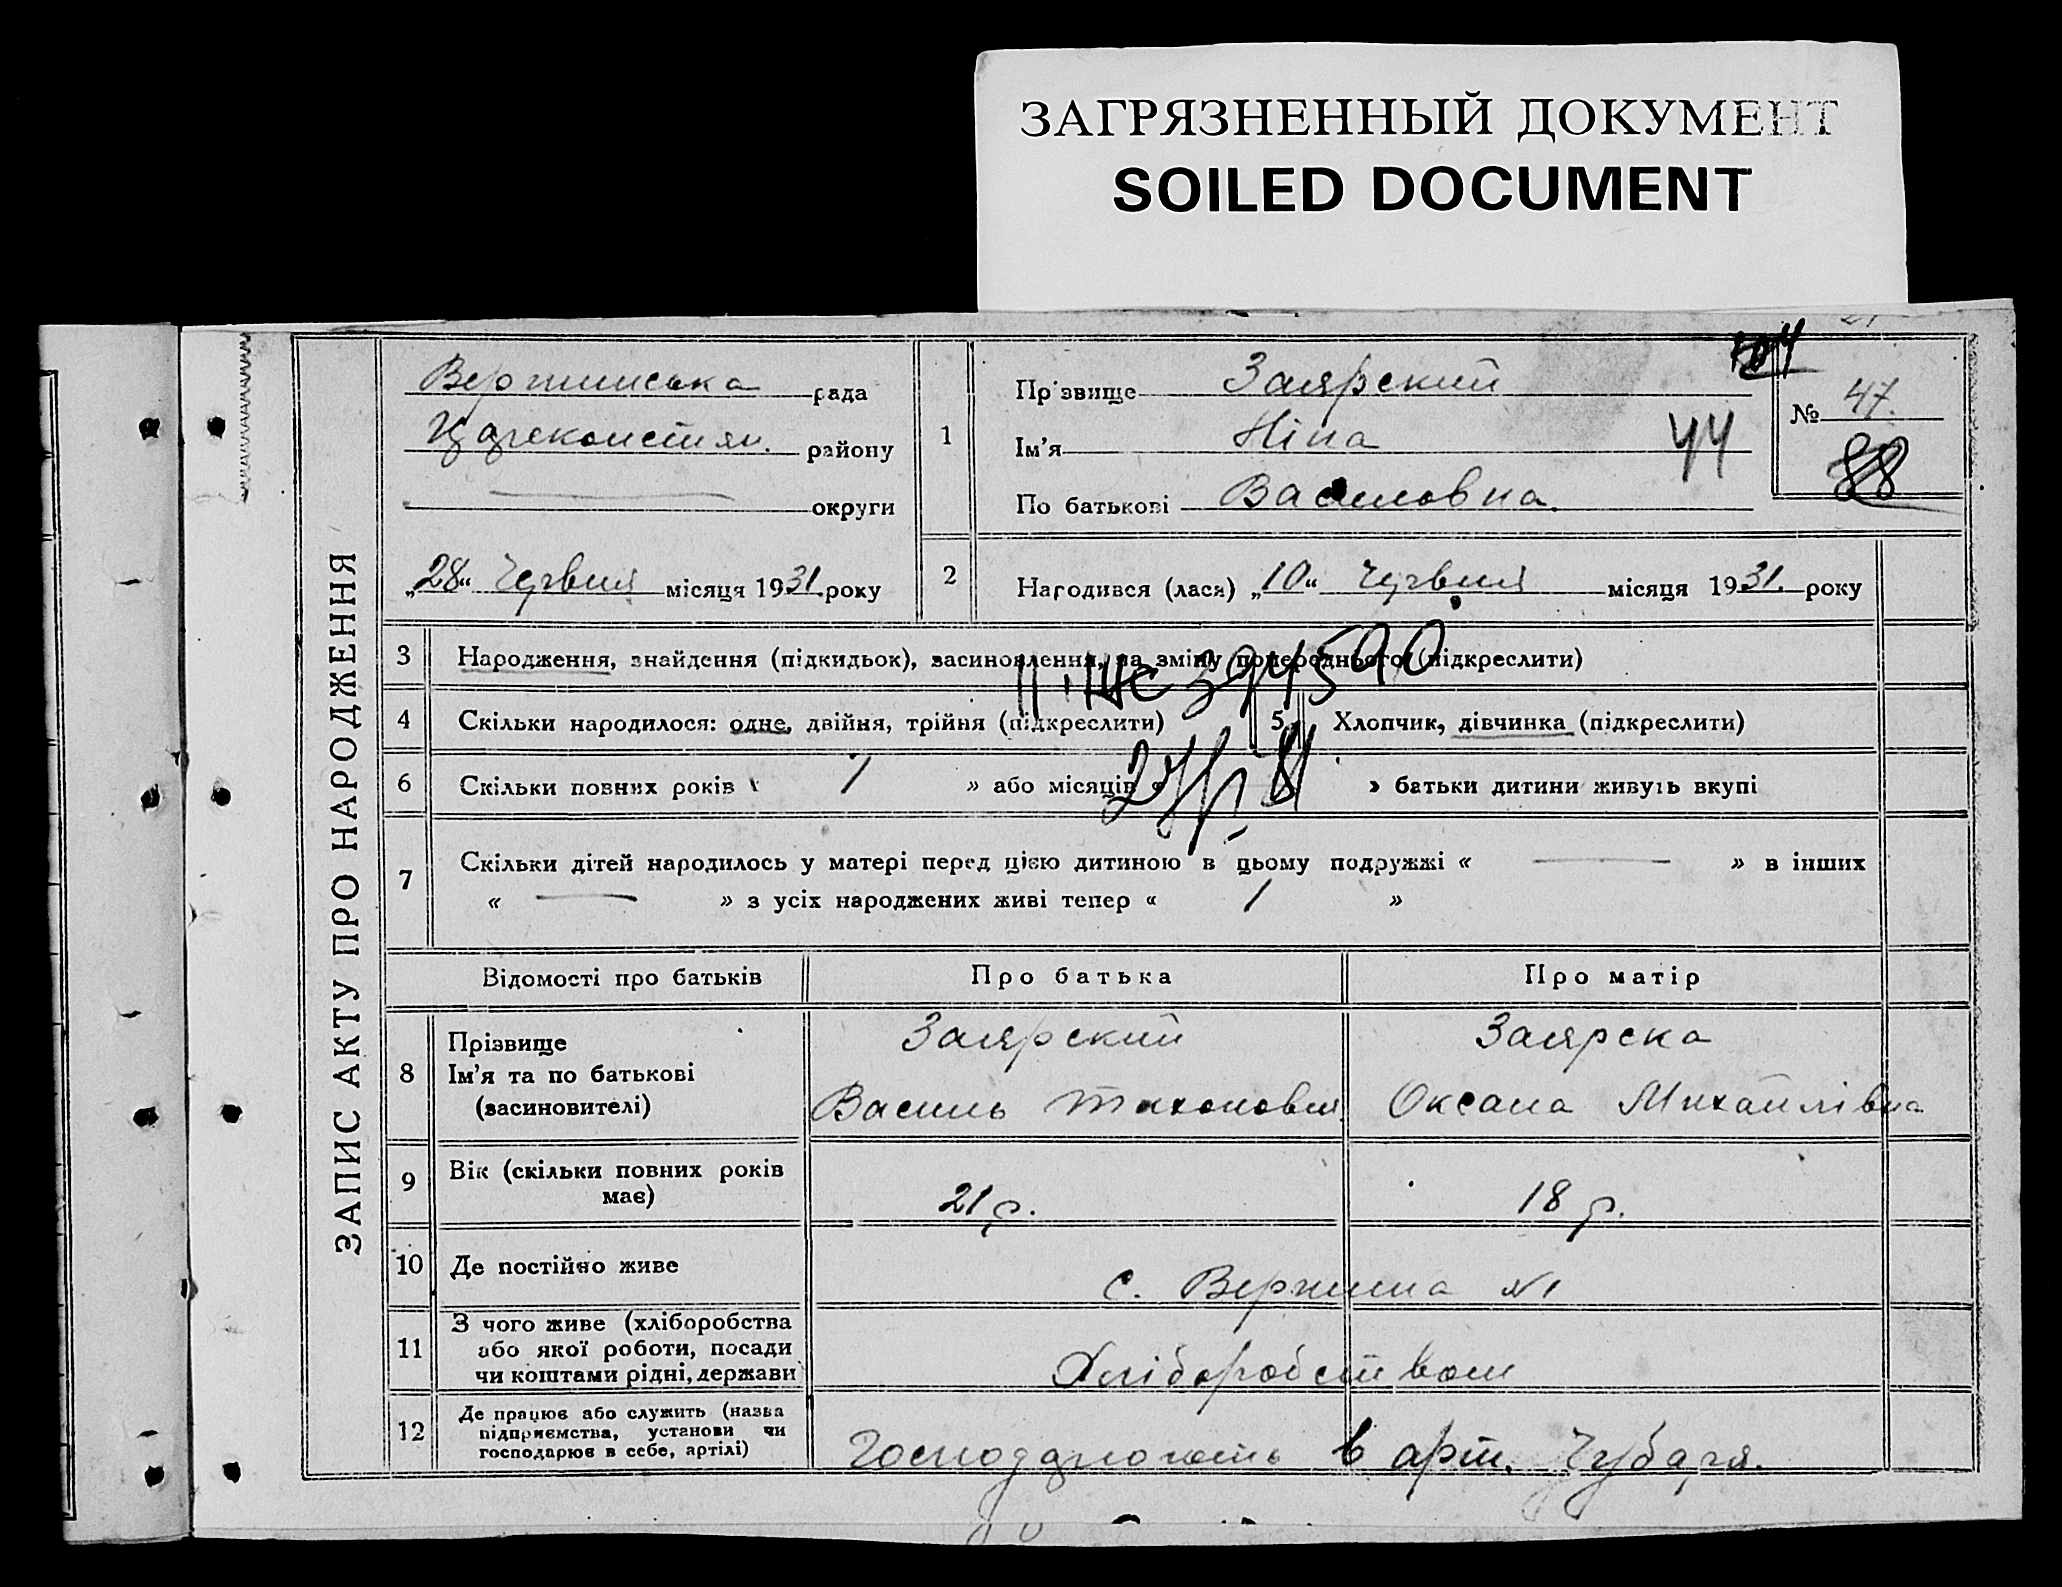 ЗАГРЯЗНЕННЫЙ ДОКУМЕНТ
SOILED DOCUMENT
ЗАПИС АКТУ ПРО НАРОДЖЕННЯ
Вершинська рада
району
округи
„28“ Червня місяця 1931 року
1
Прізвище Заярский
Ім’я Ніна
По батькові Василовна.
44
№ 47.
88
2
Народився (лася) „10“ Червня місяця 1931. року
3 Народження, знайдення (підкидьок), засиновлення, на зміну попереднього (підкреслити)
4 Скільки народилося: одне, двійня, трійня (підкреслити)
5 Хлопчик, дівчинка (підкреслити)
6 Скільки повних років « 1 » або місяців « » батьки дитини живуть вкупі
7 Скільки дітей народилось у матері перед цією дитиною в цьому подружжі « — » в інших
« — » з усіх народжених живі тепер « 1 »
Відомості про батьків Про батька Про матір
8 Прізвище
Ім’я та по батькові
(засиновителі)
Заярский
Василь Тихонович
Заярска
Оксана Михайлівна
9 Вік (скільки повних років
має)
21 р. 18 р.
10 Де постійно живе с. Вершина №1
11 З чого живе (хліборобства
або якої роботи, посади
чи коштами рідні, держави
Хліборобством
12 Де працює або служить (назва
підприємства, установи чи
господарює в себе, артілі)
в арт. Чубаря.